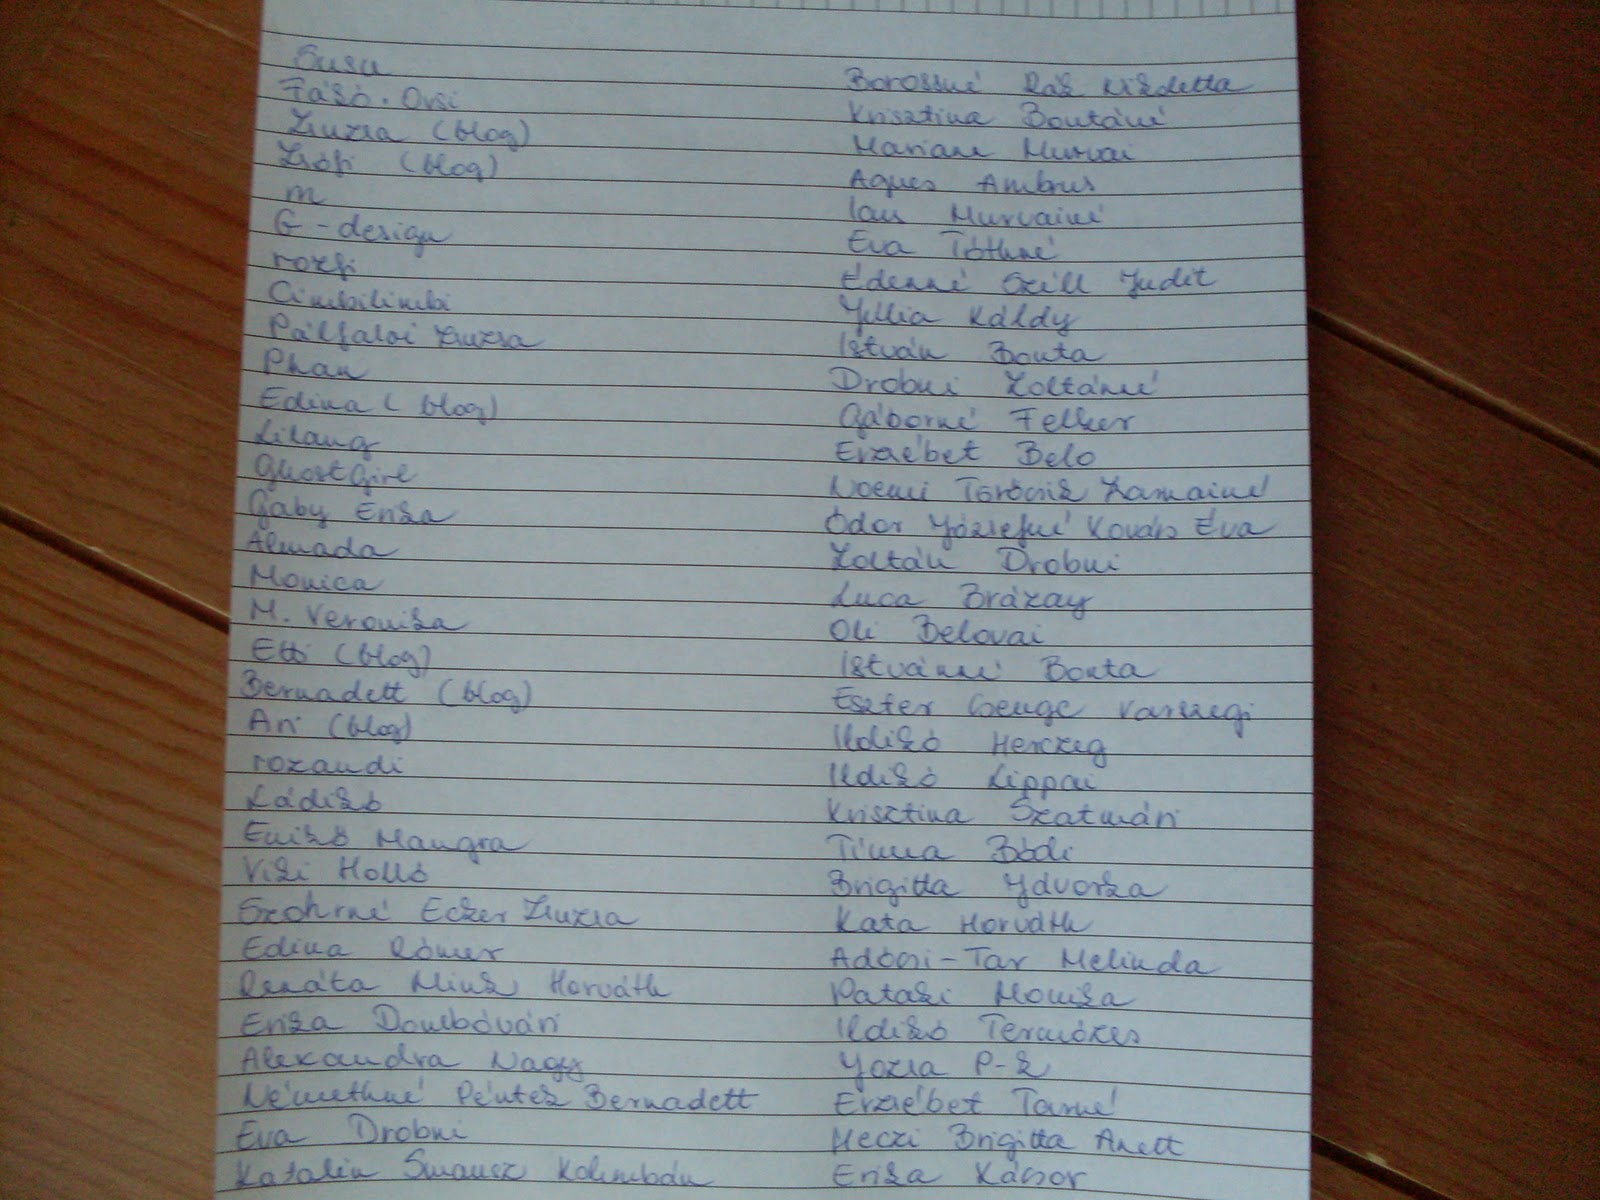 Susu
Fázó. Orsi
Zsuzsa (blog)
Zsófi (blog)
m
G-design
rozsi
Cimbilimbi
Pálfalvi Zsuzsa
Phan
Edina (blog)
Lilang
GhostGirl
Gaby Erika
Almada
Monica
M. Veronika
Etti (blog)
Bernadett (blog)
Ari (blog)
rozandi
Ládikó
Enikő Mangra
Viki Holló
Szohrné Ecker Zsuzsa
Edina Rómer
Renáta Mink Horváth
Erika Dombóvári
Alexandra Nagy
Némethné Péntek Bernadett
Eva Drobni
Katalin Smausz Kolumbán
Borossné Rák Nikoletta
Krisztina Bontáné
Mariann Murvai
Agnes Ambrus
Ian Murvainé
Eva Tóthné
Édenné Széll Judit
Jullia Káldy
István Bonta
Drobni Zoltánné
Gáborné Felker
Erzsébet Belo
Noemi Törőcsik Zamainé
Ódor Józsefné Kovács Éva
Zoltán Drobni
Luca Brázay
Oli Belovai
Istvánné Bonta
Eszter Csenge Varszegi
Ildikó Herczeg
Ildikó Lippai
Krisztina Szatmári
Timea Bódi
Brigitta Jdvorka
Kata Horváth
Adócsi-Tar Melinda
Pataki Monika
Ildikó Termókes
Jozsa P-K
Erzsébet Tarné
Heczi Brigitta Anett
Erika Kácsor